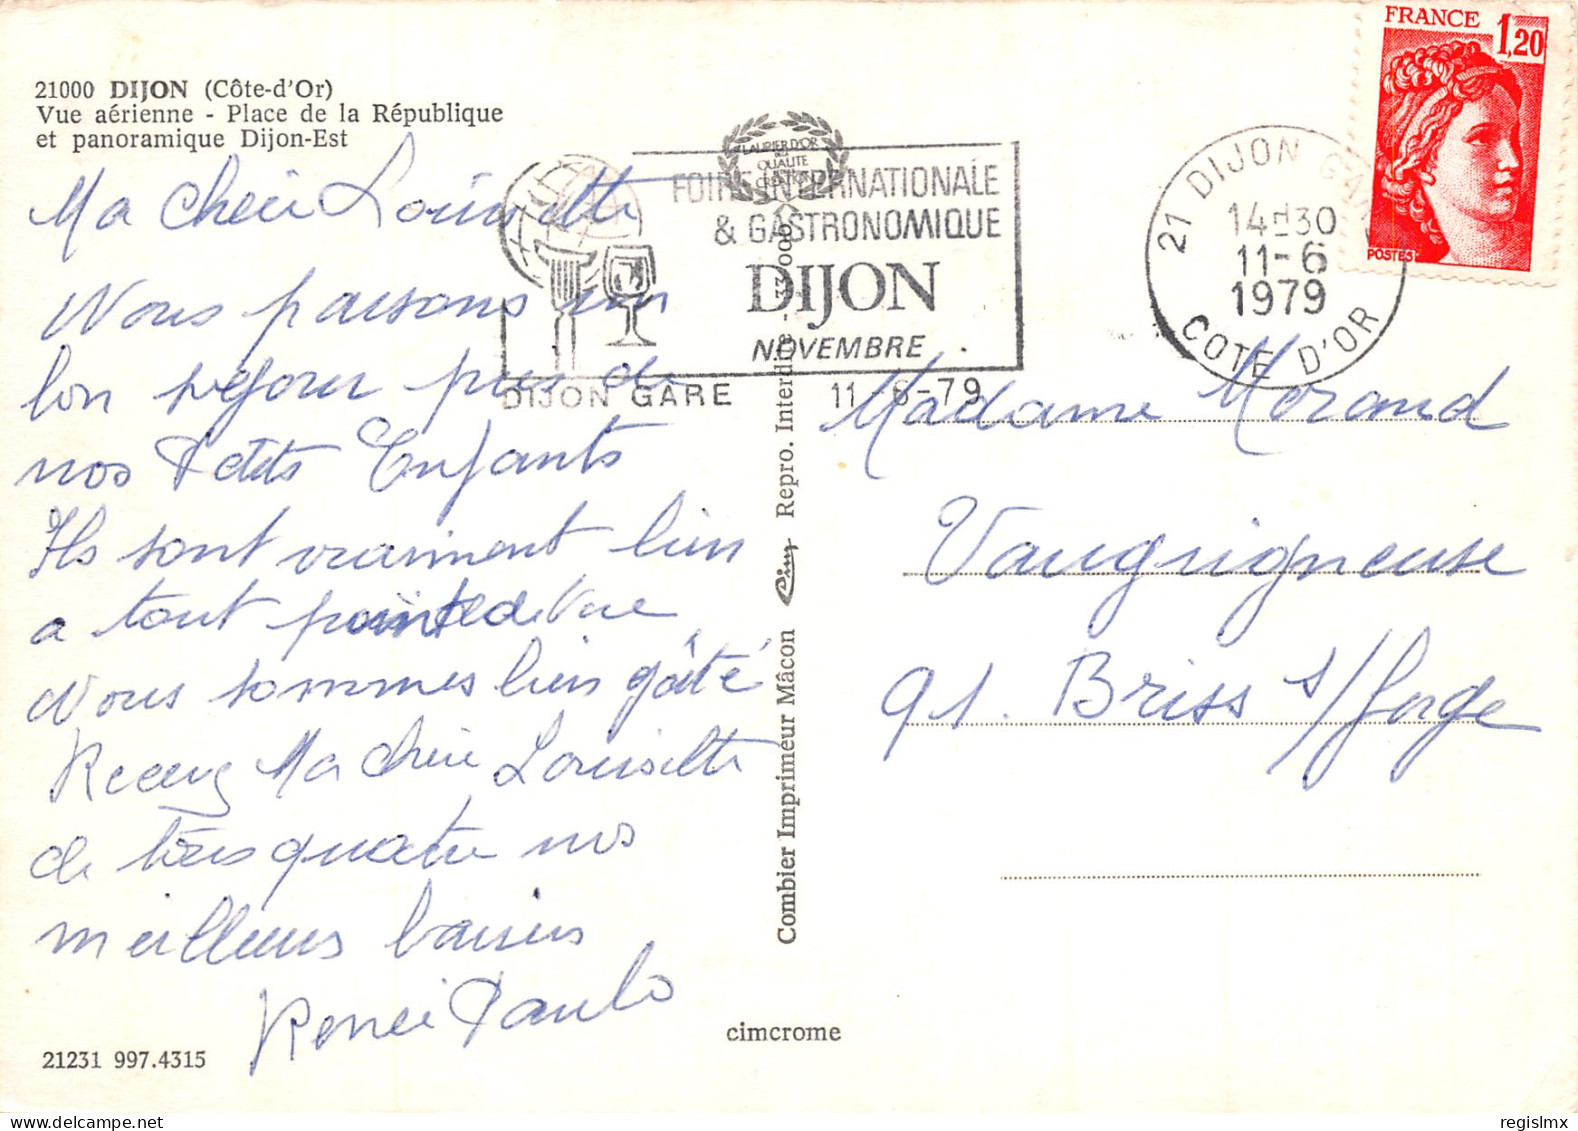 21000 DIJON (Côte-d'Or)
Vue aérienne - Place de la République
et panoramique Dijon-Est
Ma chère Louisette
Nous passons un
bon séjour près de
nos Petits Enfants
Ils sont vraiment bien
a tout point de vue
Nous sommes bien gâté
Recevez Ma chère Louisette
de tous quatre nos
meilleurs baisers
Renée Paulo
21231 997.4315
LAURIER D'OR
DE
QUALITE
FOIRE INTERNATIONALE
& GASTRONOMIQUE
DIJON
NOVEMBRE
DIJON GARE 11-6-79
Combier Imprimeur Mâcon Cim Repro. Interdite - 33.000
cimcrome
21 DIJON GARE
14H30
11-6
1979
COTE D'OR
FRANCE
1,20
POSTES
Madame Morand
Vaugrigneuse
91. Briss s/ forge
regislmx